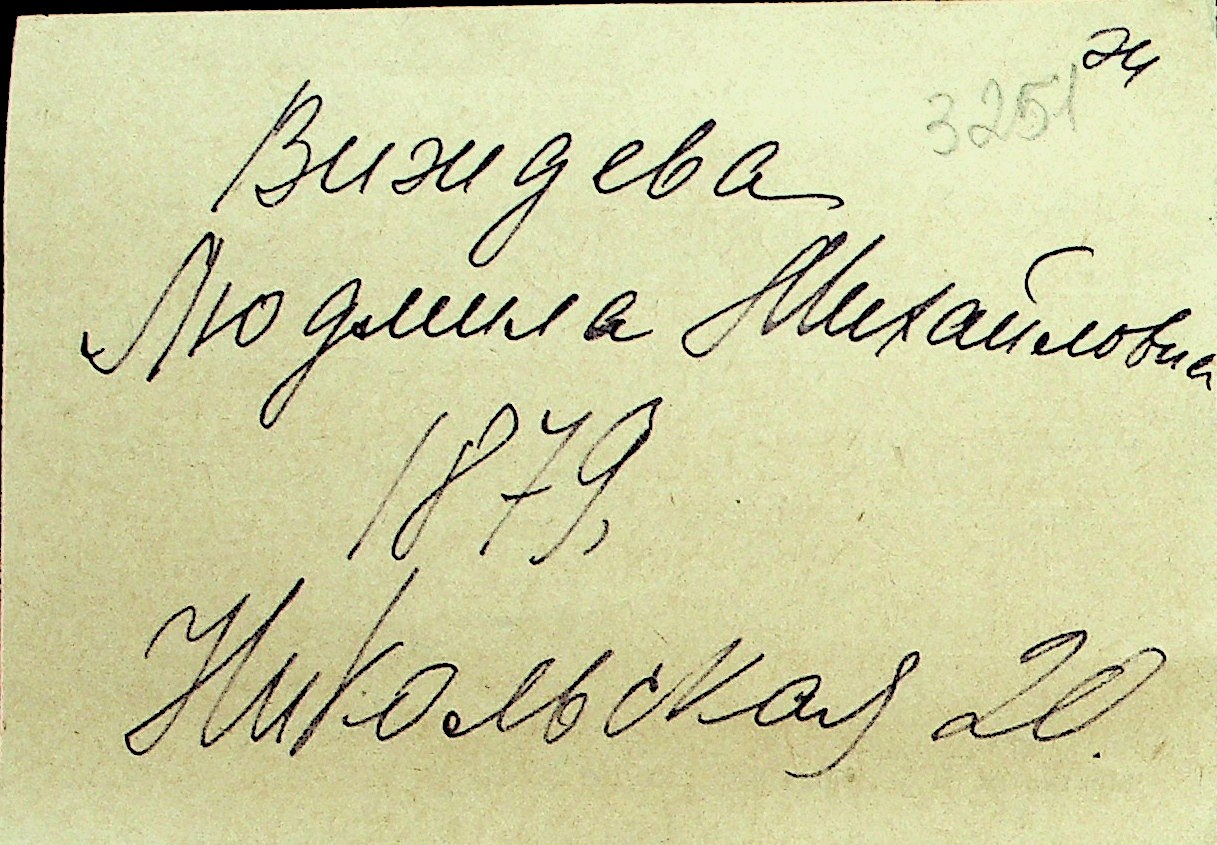 3251 ж
Вижидева
Людмила Михайловна
1879,
Никольская 20.